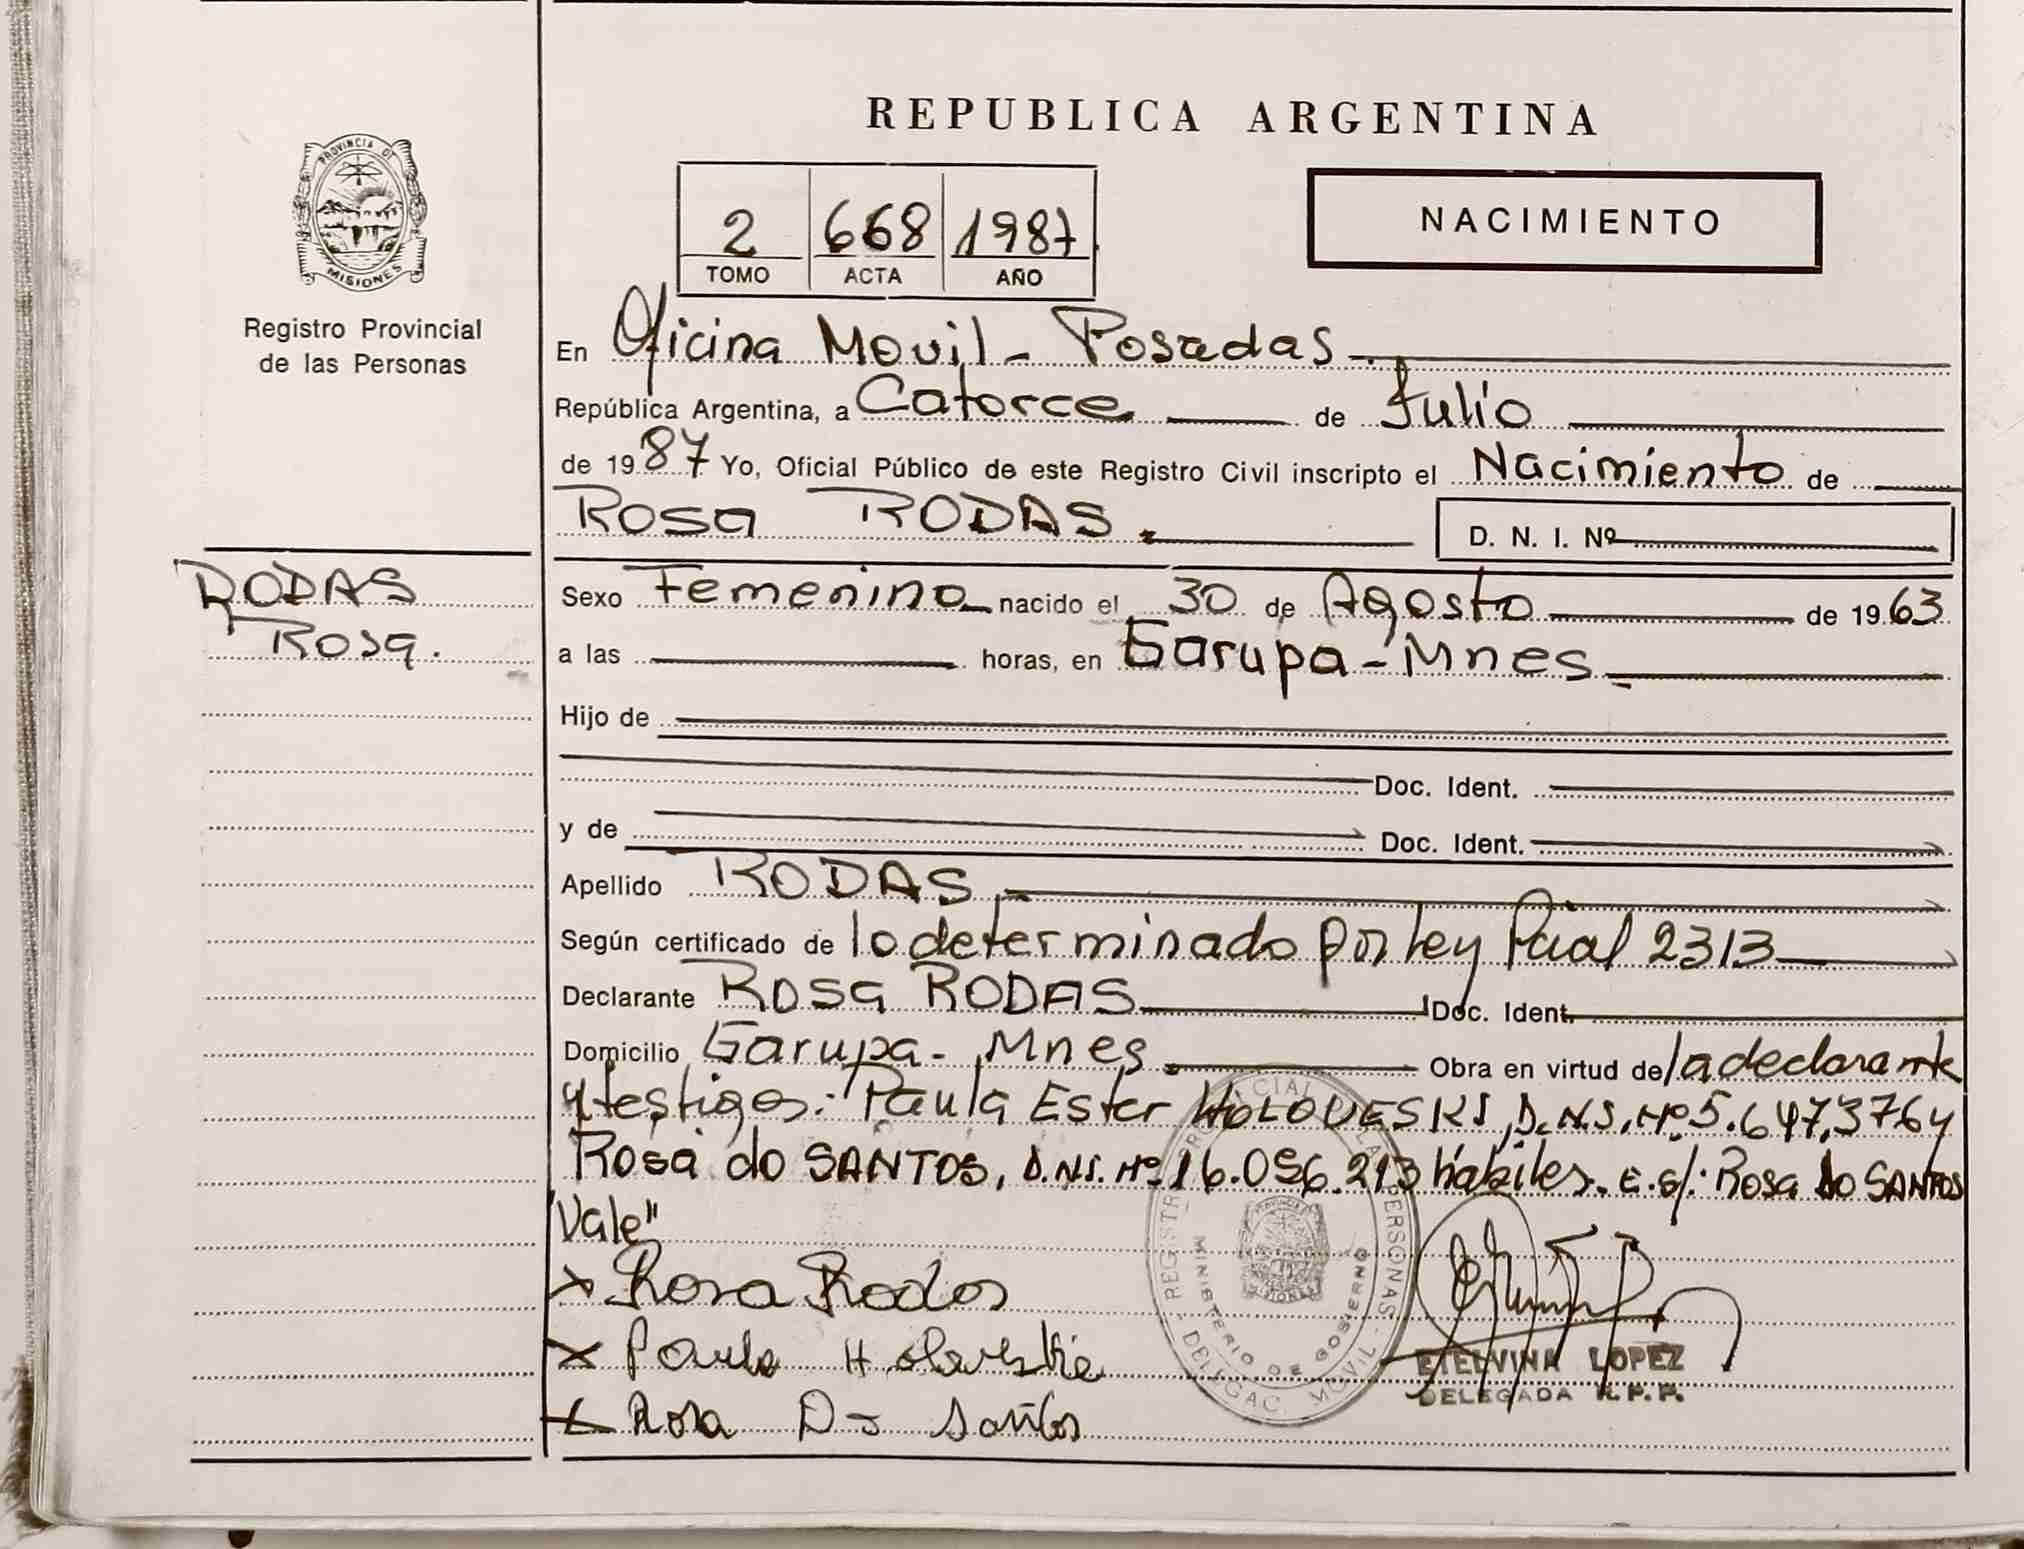 PROVINCIA DE
MISIONES
Registro Provincial
de las Personas
RODAS
Rosa.
REPUBLICA ARGENTINA
2 668 1987
TOMO ACTA AÑO
NACIMIENTO
En Oficina Movil - Posadas -
República Argentina, a Catorce de Julio
de 1987 Yo, Oficial Público de este Registro Civil inscripto el Nacimiento de
Rosa RODAS. D. N. I. Nº
Sexo Femenino nacido el 30 de Agosto de 1963
a las horas, en Garupa - Mnes
Hijo de
Doc. Ident.
y de Doc. Ident.
Apellido RODAS
Según certificado de lo determinado por ley Pcial 2313
Declarante Rosa RODAS Doc. Ident.
Domicilio Garupa - Mnes Obra en virtud de la declarante
y testigos: Paula Ester HOLOVESKI, D.N.I. Nº 5.647.376 y
Rosa do SANTOS, D.N.I. Nº 16.056.213 hábiles. E. s/: Rosa do SANTOS
Vale"
x Rosa Rodas
x Paula Holoveskie
x Rosa Do Santos
REGISTRO PROVINCIAL DE LAS PERSONAS
MINISTERIO DE GOBIERNO
DELEGAC. MOVIL
ETELVINA LOPEZ
DELEGADA R.P.P.